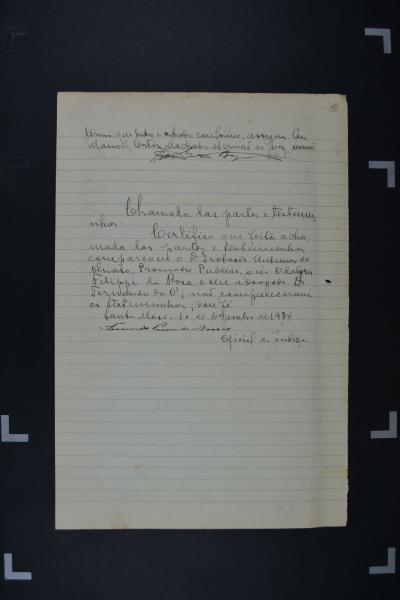 termo, que lido e achado conforme, assignam. Eu
Manoel Machado escrivão o escrevi
Chamada das partes e testemu-
nhas
Certifico que feita a cha-
mada das partes e testemunhas
compareceu o Dr
Oliveira, Promotor Publico, o réo
Felippe da Rosa e seu advogado Dr
Fernando do Ó; não compareceram
as testemunhas, dou fé
Santa Maria 10 de Dezembro de 1934
Official de Justiça